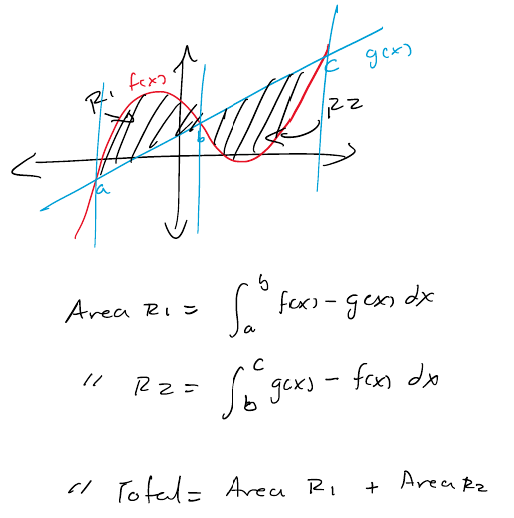 f(x)
g(x)
R1
R2
a
b
c
Area R1 = ∫_a^b f(x) - g(x) dx
" R2 = ∫_b^c g(x) - f(x) dx
" Total = Area R1 + Area R2